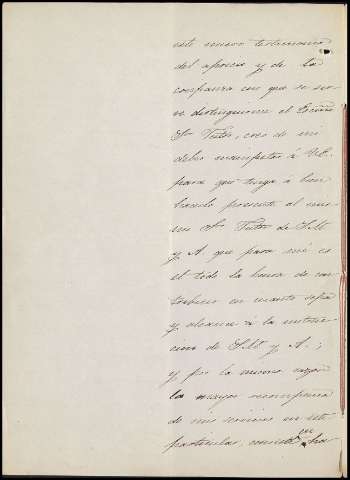 este nuevo testimonio
del aprecio y de la
confianza con que se sir-
ve distinguirme el Excmo
Sr. Tutor, creo de mi
deber manifestar á V.E.
para que tenga á bien
hacerlo presente al mis-
mo Sr. Tutor de S.M.
y A. que para mí es
el todo la honra de con-
tribuir en cuanto sepa
y alcance á la
de S.M. y A.;
y por la misma razon
la mayor recompensa
de mis servicios en este
particular, en ha-